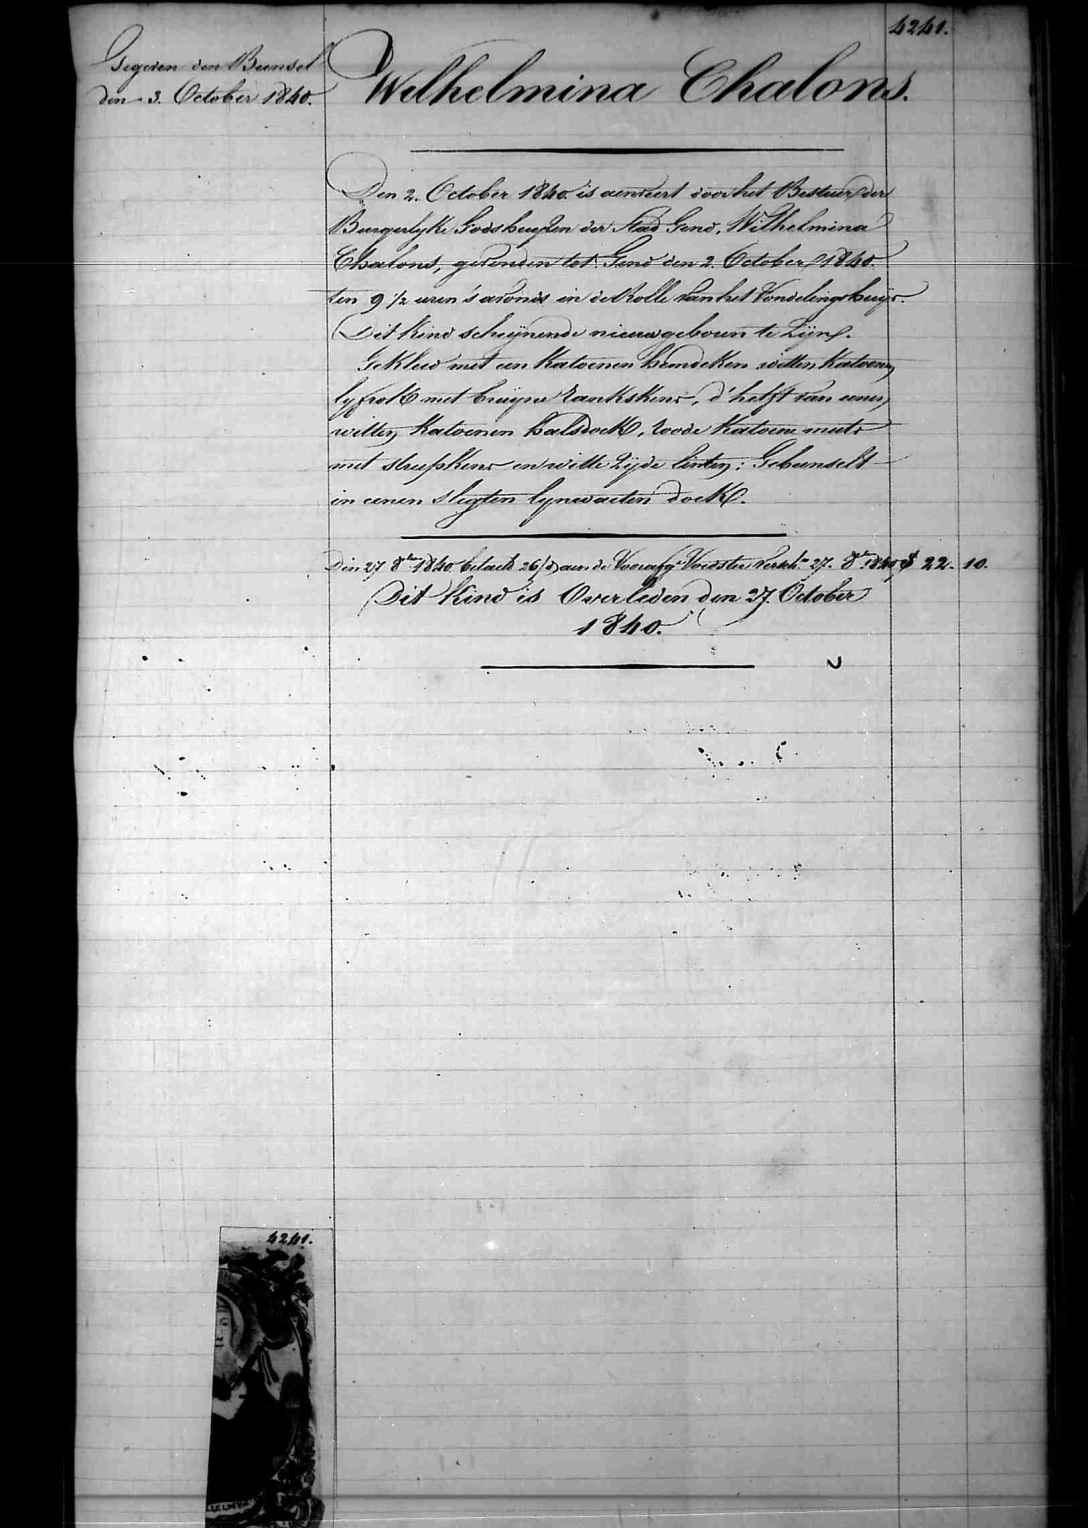 4241.
Gegeven den Bunsel
den 3. October 1840.
Wilhelmina Chalons.
Den 2. October 1840 is aenveert door het Bestuer der
Burgerlyke Godshuyzen der Stad Gend, Wilhelmina
Chalons, gevonden tot Gend den 2. October 1840.
ten 9 1/2 uren 's avonds in de Rolle van het Vondelingshuys.
Dit kind schynende nieuwgeboren te zyn.
Gekleed met een katoenen hemdeken witten katoenen
lyfrok met bruyne rankskens, d'helft van eenen
witten katoenen halsdoek, roode katoene muts
met streepkens en witte zyde linten; Gebunselt
in eenen slegten lynwaeten doek.
Den 27 8ber 1840 betaelt 26/d aen de Voedster 27. 8br 1840 22. 10.
Dit Kind is Overleden den 27. October
1840.
4241.